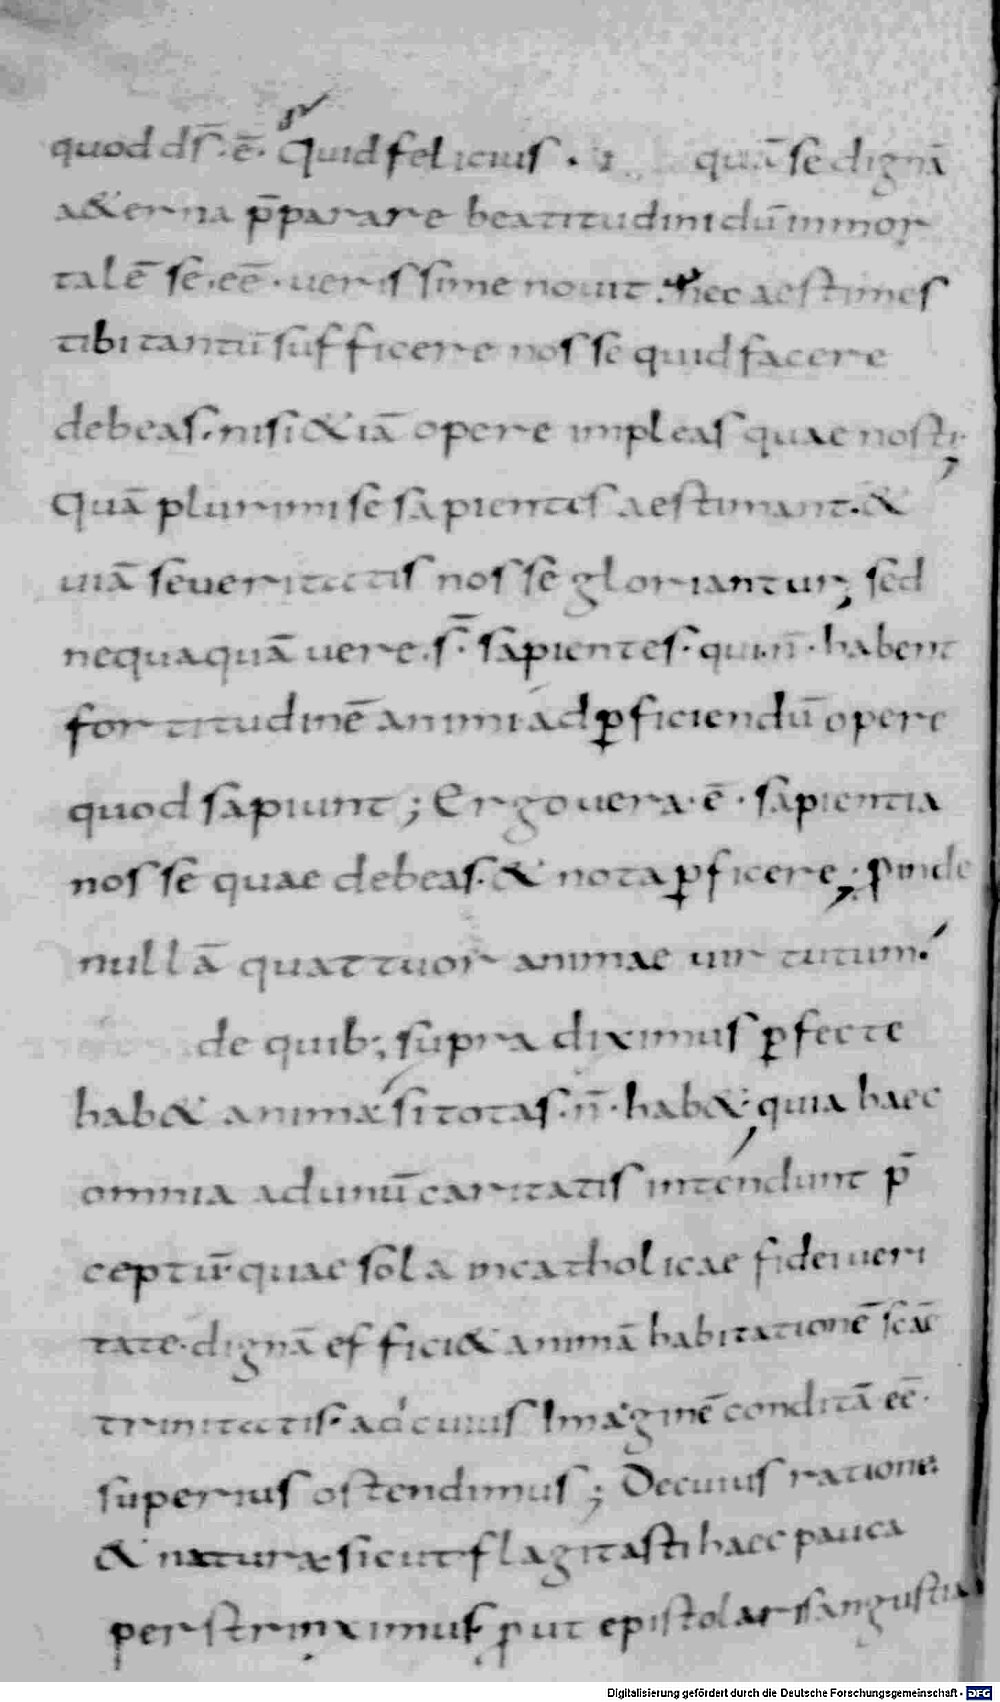 quod d̄s · ē · Quid felicius · quā se dignā
a&erna p̄parare beatitudini dū inmor
talē se · eē · uerissime nouit · Nec aestimes
tibi tantū sufficere nosse quid facere
debeas · nisi &iā opere impleas quae nosti;
Quā plurimi se sapientes aestimant · &
uiā se ueritatis nosse gloriantur; sed
nequaquā uere · s̄ · sapientes · qui · n̄ · habent
fortitudinē animi ad ꝑficiendū opere
quod sapiunt; Ergo uera · ē · sapientia
nosse quae debeas · & nota ꝑficere; ꝓinde
nullā quattuor animae uirtutum ·
de quib; supra diximus ꝑfecte
hab& anima si totas · n̄ · hab&; quia haec
omnia ad unū caritatis intendunt p̄
ceptū · quae sola in catholicae fidei ueri
tate · dignā effici& animā habitationē sc̄ae
trinitatis · ad cuius Imaginē conditā · eē ·
superius ostendimus; De cuius ratione
& natura sicut flagitasti haec pauca
perstrinximus ꝓut epistolaris angustia